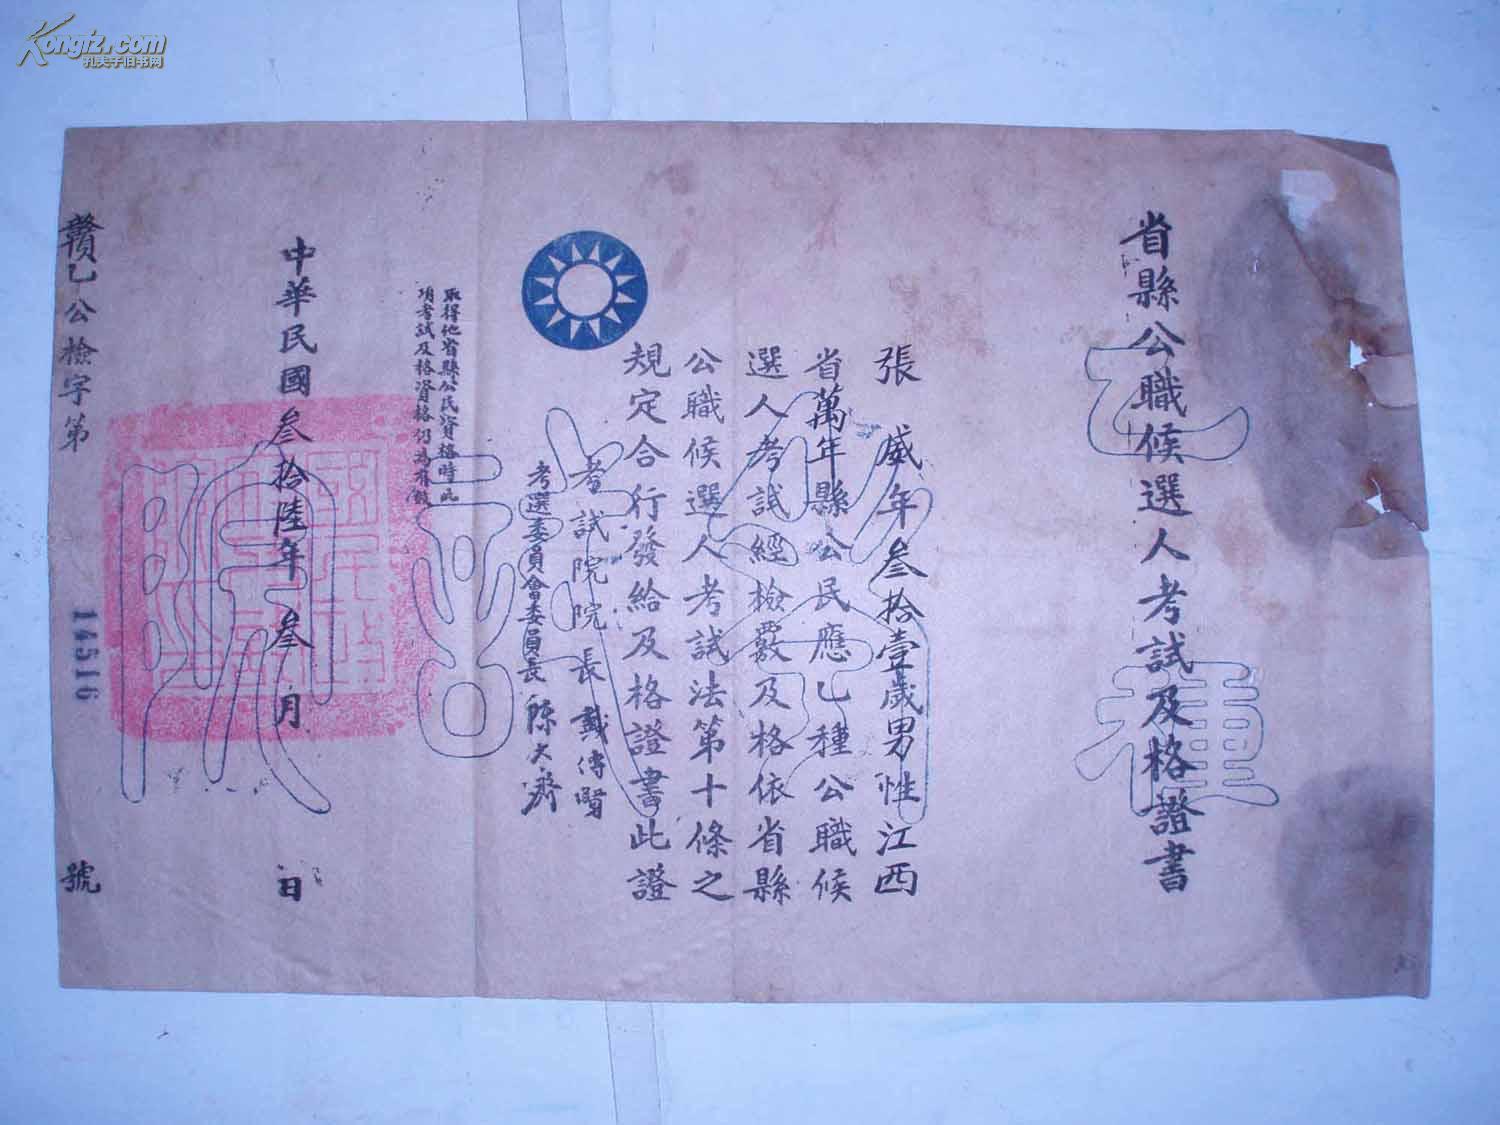 省縣公職候選人考試及格證書
乙種
張威年叁拾壹歲男性江西
省萬年縣公民應乙種公職候
選人考試經檢覈及格依省縣
公職候選人考試法第十條之
規定合行發給及格證書此證
考試院院長戴傳賢
考選委員會委員長陳大齊
取得他省縣公民資格時此
項考試及格資格仍為有效
中華民國叁拾陸年叁月 日
贛乙公檢字第14516號
考試院
Kongfz.com
孔夫子旧书网